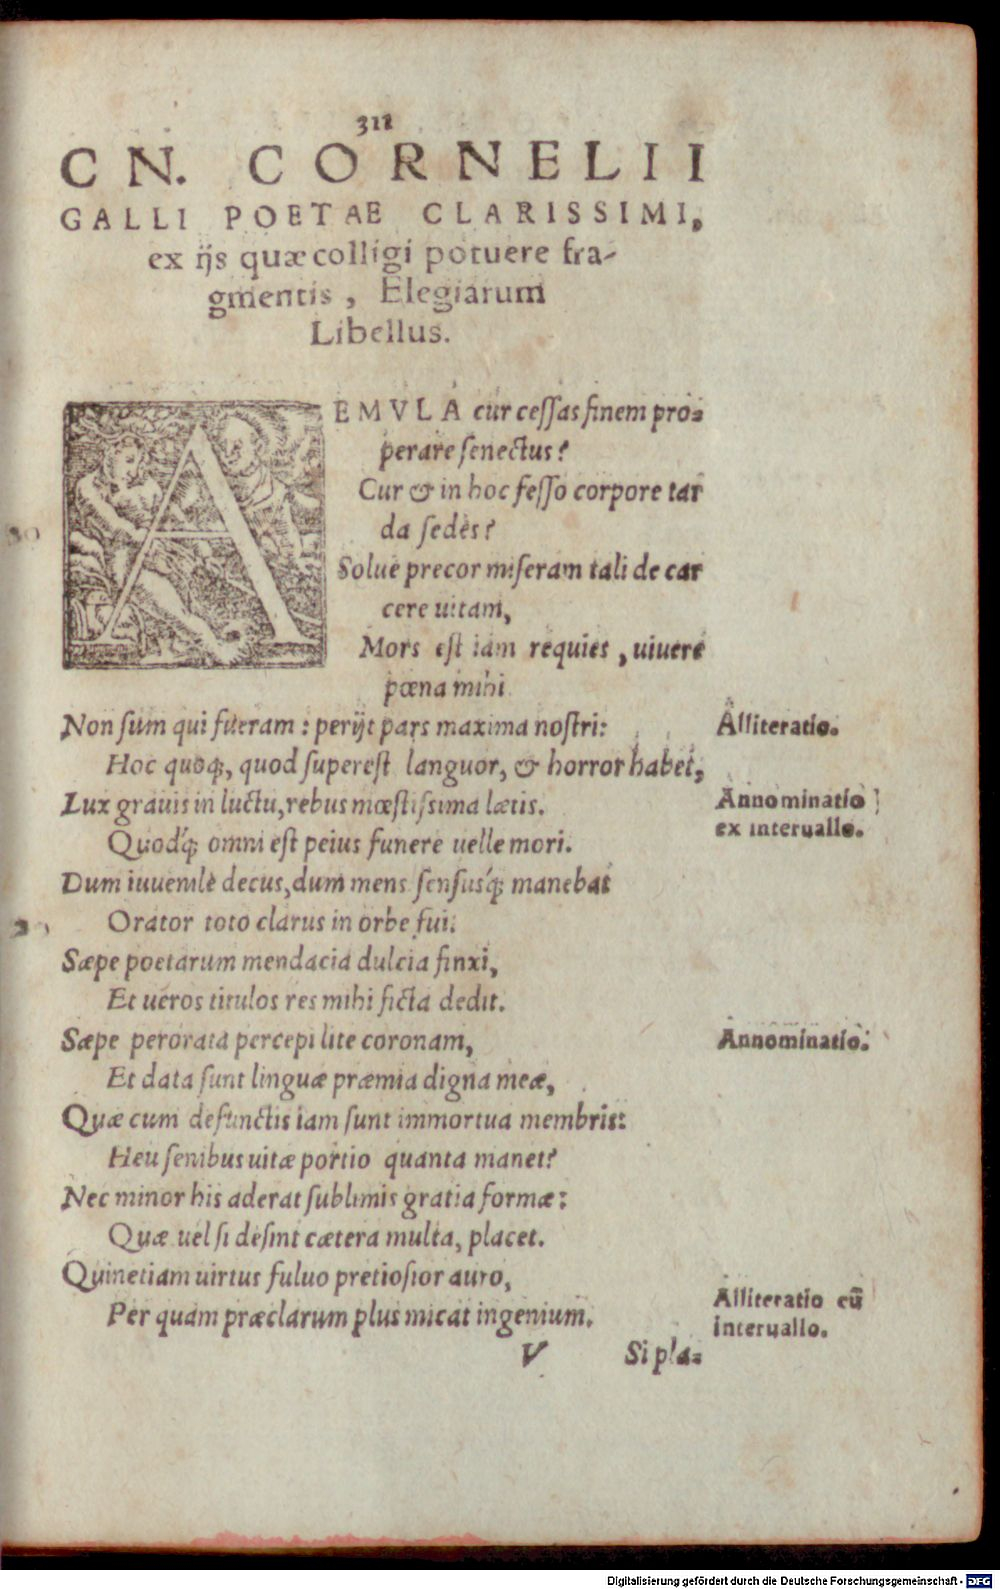 311
CN. CORNELII
GALLI POETAE CLARISSIMI,
ex ijs quæ colligi potuere fra-
gmentis, Elegiarum
Libellus.
AEMVLA cur cessas finem pro-
perare senectus?
Cur & in hoc fesso corpore tar
da sedes?
Solue precor miseram tali de car
cere uitam,
Mors est iam requies, uiuere
pœna mihi
Non sum qui fueram: perijt pars maxima nostri:
Hoc quoq;, quod superest languor, & horror habet,
Alliteratio.
Lux grauis in luctu, rebus mœstissima lætis.
Quodq́; omni est peius funere uelle mori.
Annominatio
ex interuallo.
Dum iuuenile decus, dum mens sensusq́; manebat
Orator toto clarus in orbe fui.
Sæpe poetarum mendacia dulcia finxi,
Et ueros titulos res mihi ficta dedit.
Sæpe perorata percepi lite coronam,
Annominatio.
Et data sunt linguæ præmia digna meæ,
Quæ cum defunctis iam sunt immortua membris:
Heu senibus uitæ portio quanta manet?
Nec minor his aderat sublimis gratia formæ:
Quæ uel si desint cætera multa, placet.
Quinetiam uirtus fuluo pretiosior auro,
Per quam præclarum plus micat ingenium.
Alliteratio cū
interuallo.
V
Si pla-
Digitalisierung gefördert durch die Deutsche Forschungsgemeinschaft - DFG